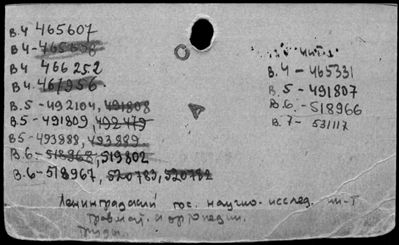 в.4 465607
в.4-465608
в4 466252
в4-467956
в.5-492104, 491808
в5-491809, 492479
в5-493988, 493989
в.6-518968, 519802
в.6-518967, 520783, 520782
в.4-465331
в.5-491807
в.6-518966
в.7-531117
Ленинградский гос. научно-исслед. ин-т
травмат. и ортопедии.
Труды.